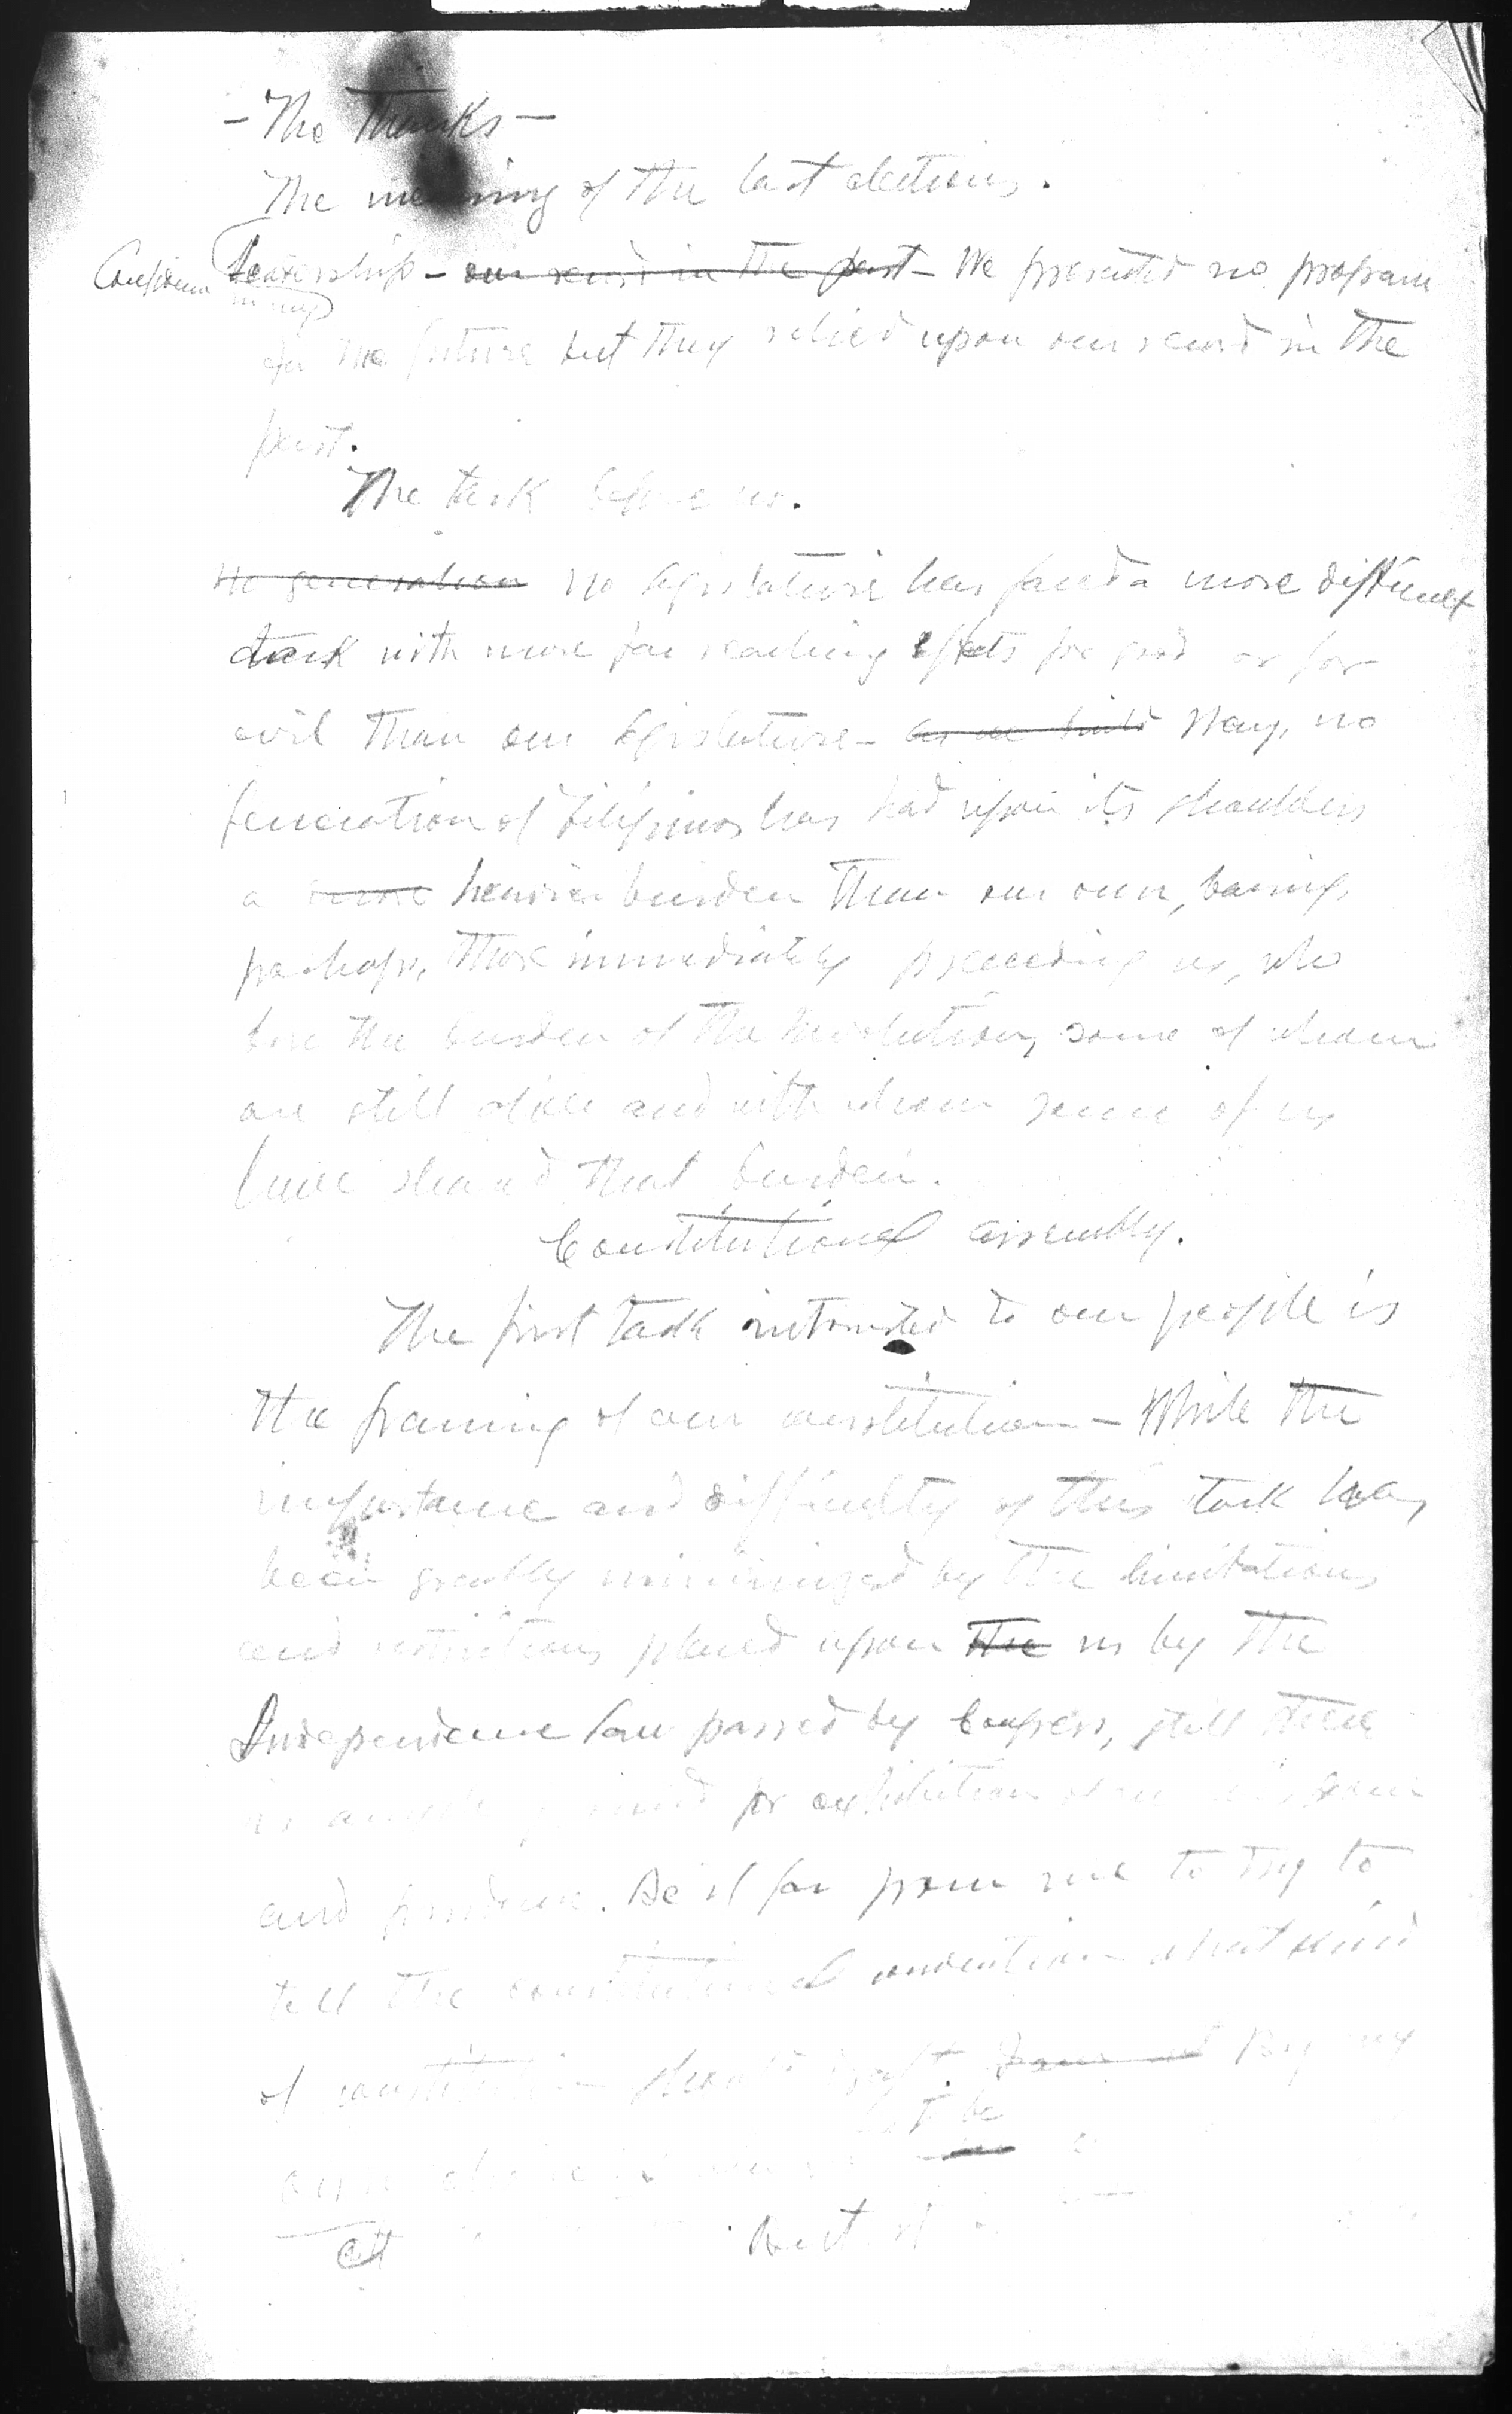 - The Thanks -
The meaning of the last elections.
Leadership - our record in the past - We presented no program
in my
for the future but they relied upon our record in the
past.
The task before us.
No generation No legislature has faced a more difficult
task with more far reaching effects for good or for
evil than our legislature - Nay, no
generation of Filipinos has had upon its shoulders
a more heavier burden than our own, baring,
perhaps, those immediately preceeding us, who
bore the burden of the Revolution, some of whom
are still alive and with whom some of us
have shared that burden.
Constitutional assembly.
The first task intrusted to our people is
the framing of our constitution - While the
importance and difficulty of this task has
been greatly minimized by the limitations
and restrictions placed upon the us by the
Independence law passed by Congress, still there
is ample for exhibition of our wisdom
and prudence. Be it far from me to try to
tell the constitutional convention what kind
of constitution should draft. my
be
But